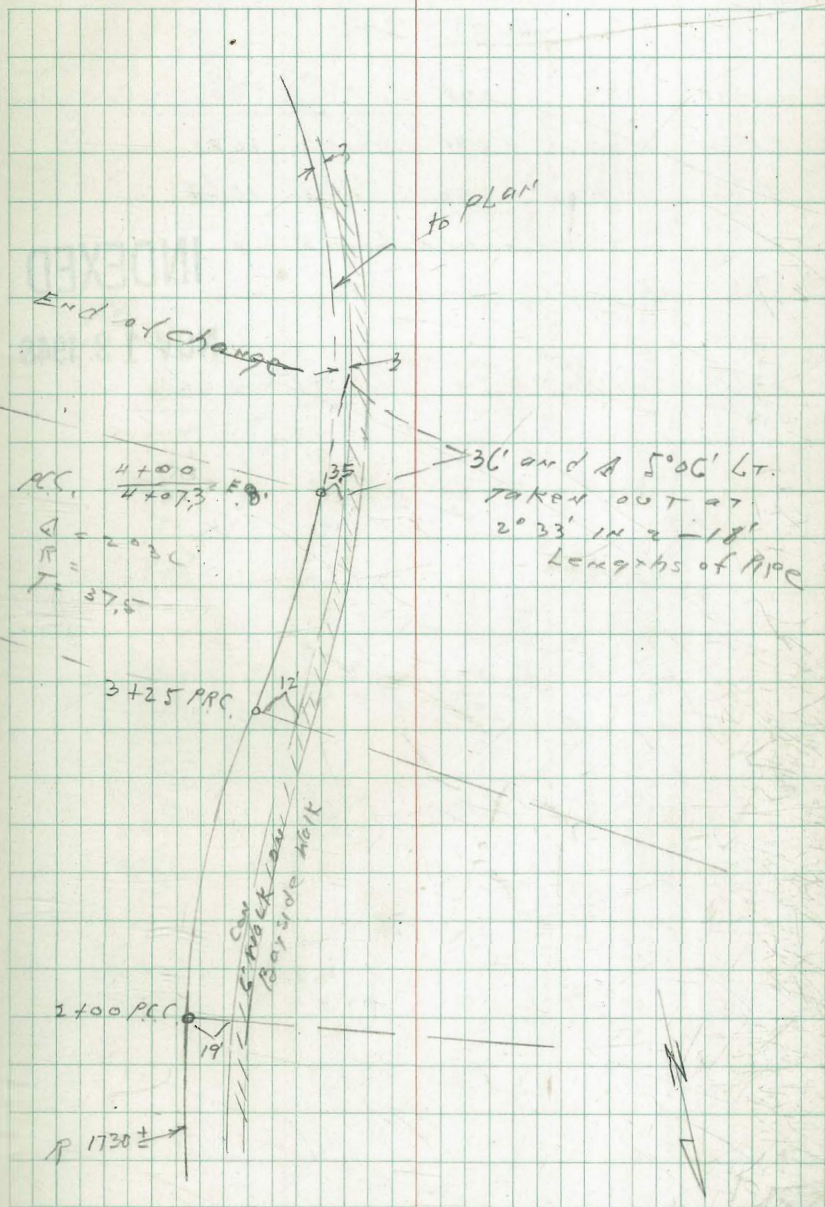 3
to PLAN
End of Change
3
P.C.C. 4+00
4+07.3 EQ.
3.5
36' and Δ 5°06' LT.
Taken out at
2°33' IN 2-18'
Lengths of Pipe
Δ = 2°36
R =
T = 37.5
3+25 PRC.
12'
Con
6' WALK
Bayside Walk
2+00 P.C.C.
19'
R 1730±
INDEXED
N